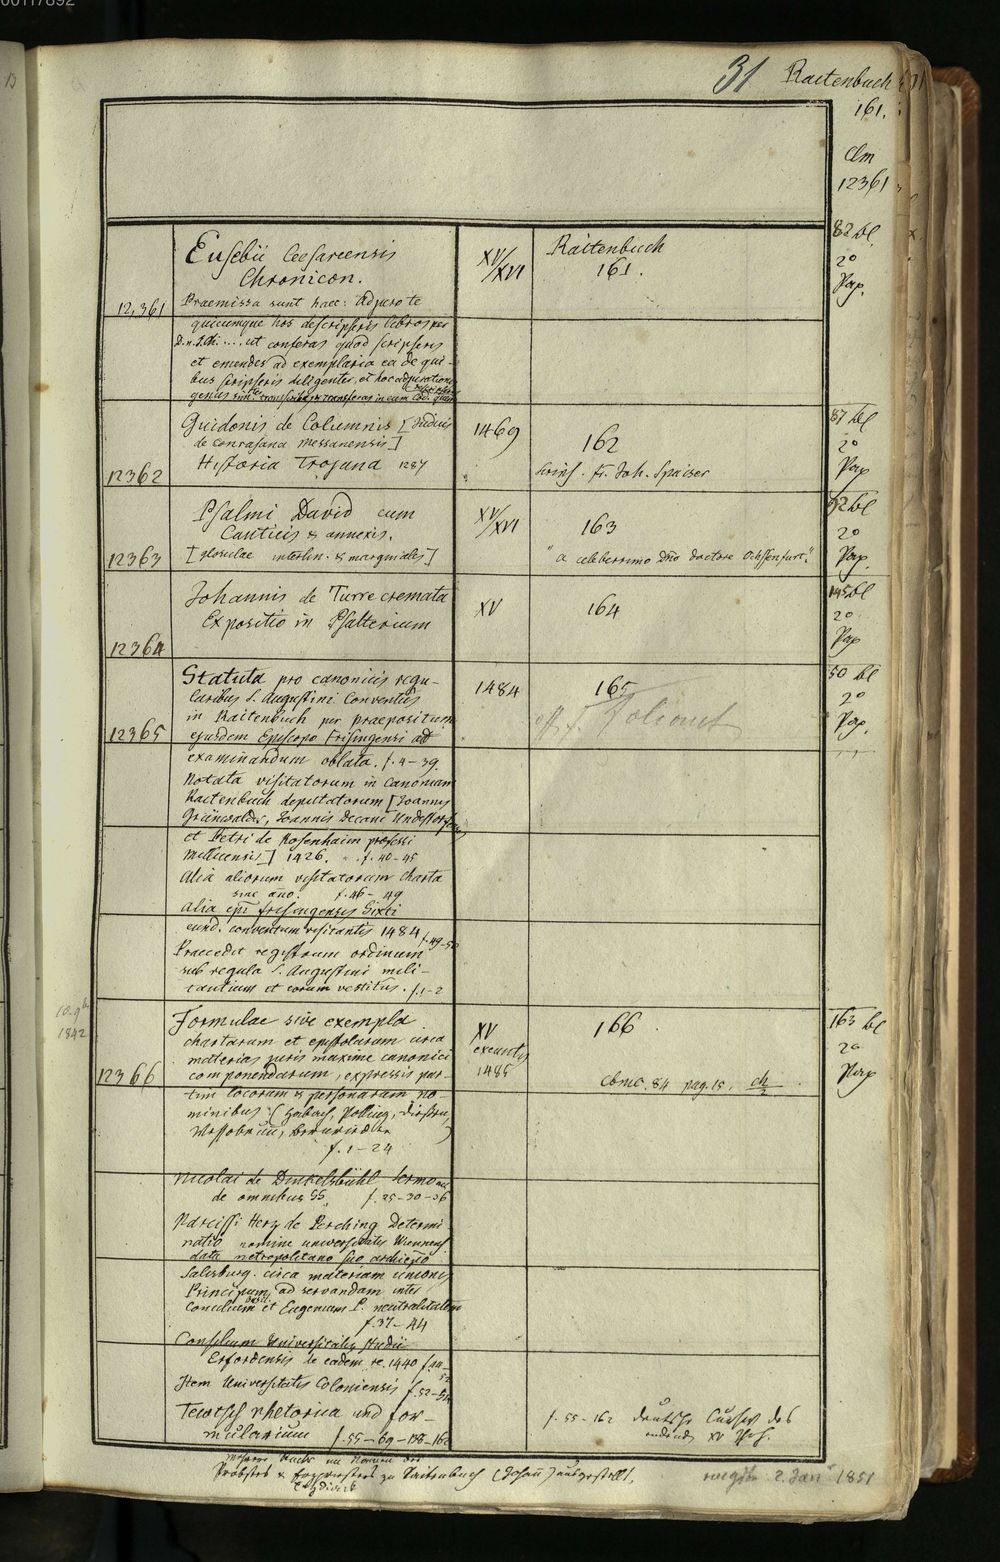 00117892
31 Raitenbuch
161.
Clm
12361
Eusebii Ceesareensis
Chronicon.
12,361 Praemissa sunt haec: Adjuro te
quicumque hos descripseris libros per
D. n. J. Ch. .... ut conferas quod scripseris
et emendes ad exemplaria ea de qui-
bus scripseris diligenter, et hoc adjurationis
genus
XV/XVI
Raitenbuch
161.
82 bl.
2°
Pap.
12362
Guidonis de Columnis [Judicis
de Messanensis]
Historia Trojana 1287
1469
162
Scrips. fr. Joh. Spaiser
87 bl
2°
Pap
12363
Psalmi David cum
Canticis & annexis.
[glosulae interlin. & marginales]
XV/XVI
163
"a celeberrimo Dño doctore Ochssenfurt".
bl
2°
Pap.
12364
Johannis de Turre cremata
Expositio in Psalterium
XV
164
145 bl
2°
Pap
12365
Statuta pro canonicis regu-
laribus S. Augustini Conventus
in Raitenbuch per praepositum
ejusdem Episcopo Frisingensi ad
examinandum oblata. f. 4-39.
Notata visitatorum in canoniam
Raitenbuch deputatorum [Joannis
Grünwalder, Joannis Decani Undestorfensis
et Petri de Rosenheim professi
Mellicensis] 1426. f. 40-45
Alia aliorum visitatorum charta
sine año. f. 46-49
Alia epi frisingensis Sixti
eund. conventum visitantis 1484 f. 49-50
Praecedit registrum ordinum
sub regula S. Augustini mili-
tantium et eorum vestitus. f. 1-2
1484
165
50 bl
2°
Pap.
1842
12366
Formulae sive exempla
chartarum et epistolarum circa
materias juris maxime canonici
componendarum, expressis par-
tim locorum & personarum no-
minibus (Polling, Diessen,
Wessobrun,
f. 1-24
Nicolai de Dinkelsbühl Sermones
de omnibus SS. f. 25-30-36
Narcissi Herz de Perching Determi-
natio nomine universitatis Wiennensis
data metropolitano suo archiepo
Salisburg. circa materiam unionis
Principum ad servandam inter
Concilium et Eugenium P. neutralitatem
f. 37-44
Consilium Universitatis Studii
Erfordensis de eadem re. 1440 f. 44-52
Item Universitatis Coloniensis f. 52-54
Tewtsch rhetorica und for-
mularium f. 55-69-138-162
XV
exeuntis
1485
166
Cbmc. 84 pag. 15.
163 bl
2°
Pap
f. 55-162 deutsche Cursiv des
endend. XV Jhh.
Probstes & zu Raitenbuch (Johañ) ausgestellt.
2. Jan 1851